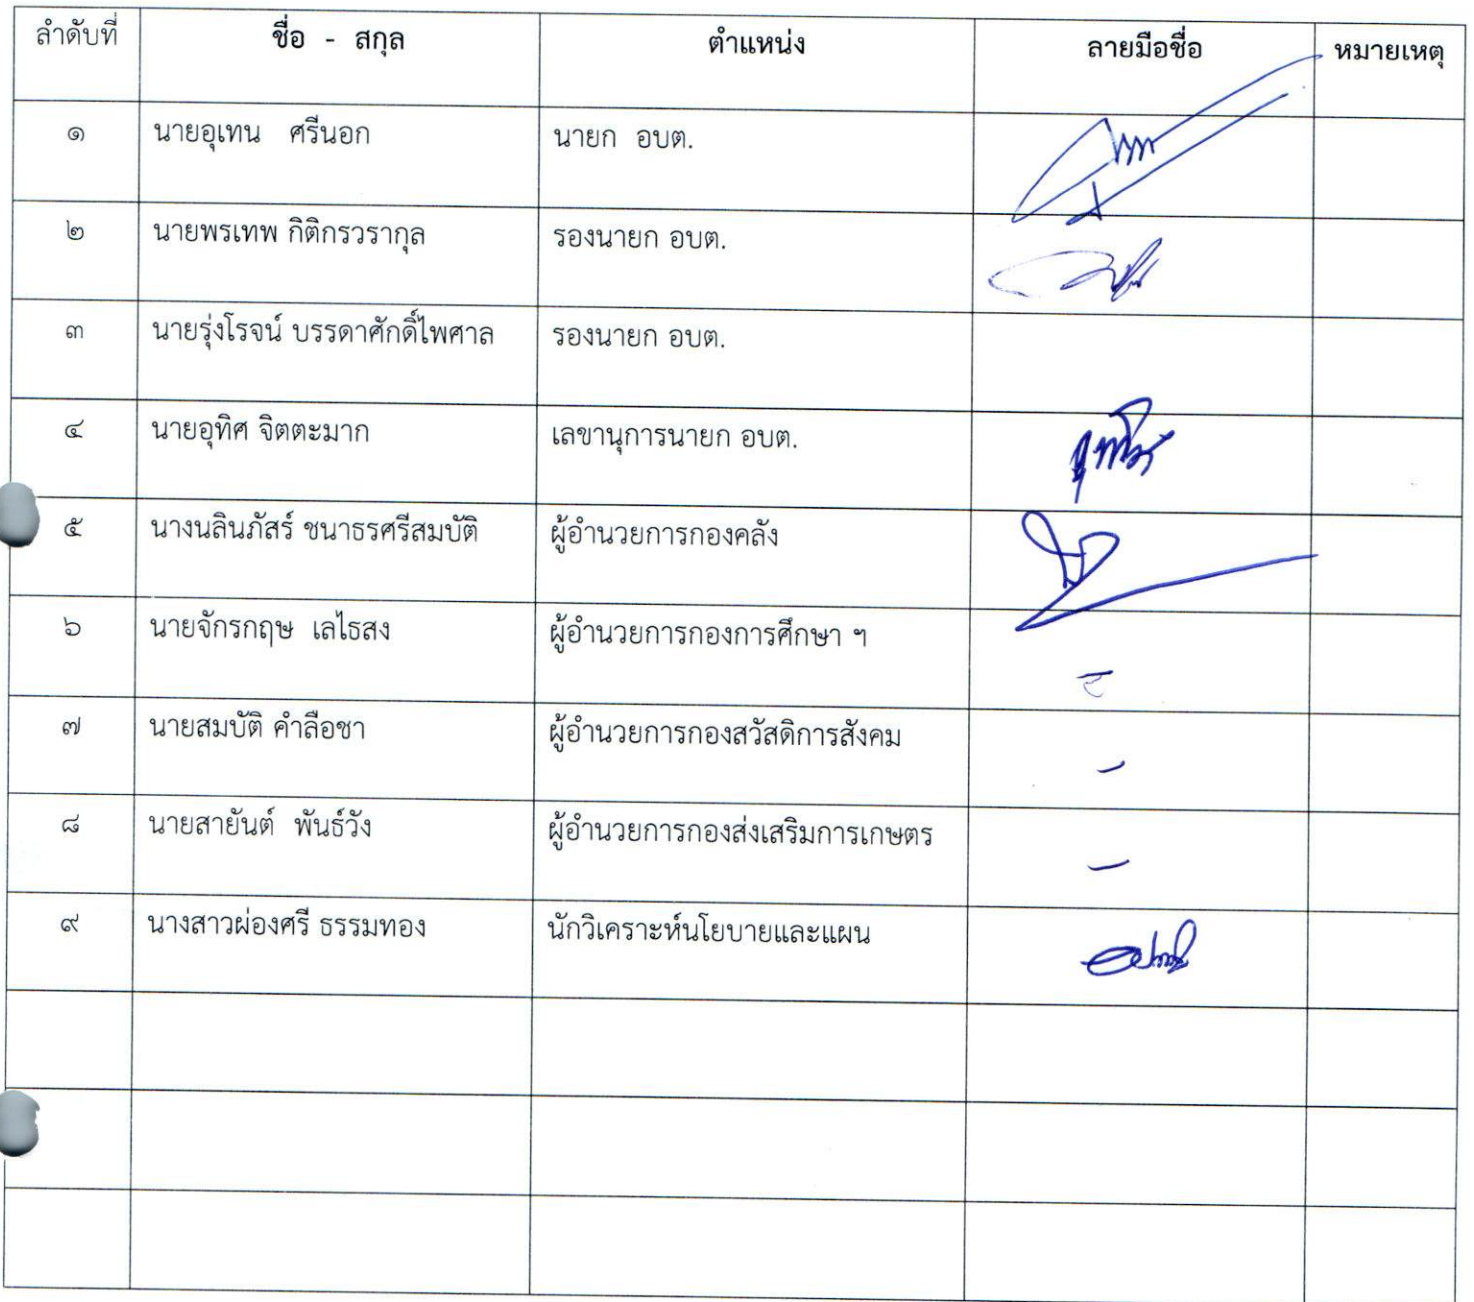 ลำดับที่ ชื่อ - สกุล ตำแหน่ง ลายมือชื่อ หมายเหตุ
๑ นายอุเทน ศรีนอก นายก อบต.
๒ นายพรเทพ กิติกรวรากุล รองนายก อบต.
๓ นายรุ่งโรจน์ บรรดาศักดิ์ไพศาล รองนายก อบต.
๔ นายอุทิศ จิตตะมาก เลขานุการนายก อบต.
๕ นางนลินภัสร์ ชนาธรศรีสมบัติ ผู้อำนวยการกองคลัง
๖ นายจักรกฤษ เลไธสง ผู้อำนวยการกองการศึกษา ฯ
๗ นายสมบัติ คำลือชา ผู้อำนวยการกองสวัสดิการสังคม -
๘ นายสายันต์ พันธ์วัง ผู้อำนวยการกองส่งเสริมการเกษตร -
๙ นางสาวผ่องศรี ธรรมทอง นักวิเคราะห์นโยบายและแผน